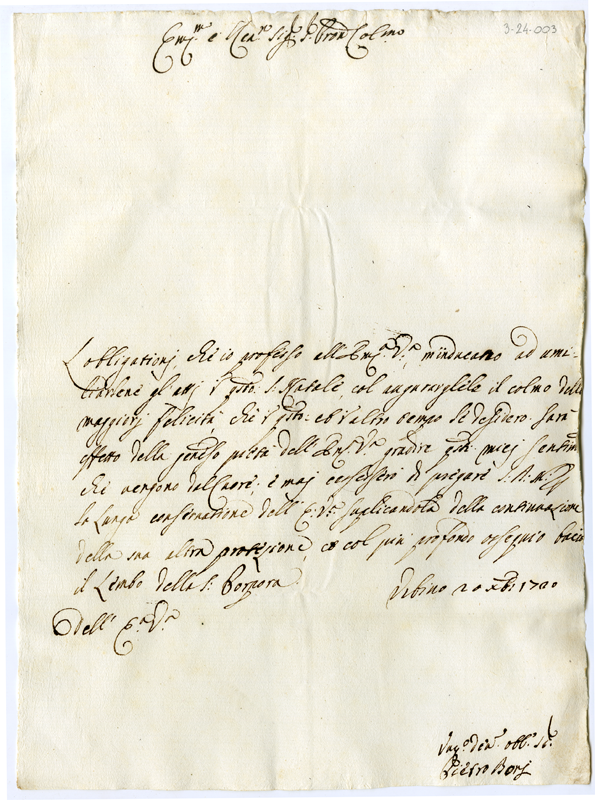 3-24-003
Em.^mo e Rev.^mo Sig.^r Sig.^r P.ron Col.mo
L'obligationj, che io professo all'Em.^a V.^a, m'inducano ad umi-
liarlene gli atti nel p.nte S. Natale, col augurargliele il colmo delle
maggiorj felicità, che in q.to: et in altro tempo si desidero. Sarà
effetto della pietà dell'Em.^a V.^a gradire miej sentim.^ti
che vengono dal Cuore; e maj cesserò di pregare S. D. M. p
la lunga conservatione dell'E. V.^a suplicandola della continuazione
della sua alta protezione, e col più profondo ossequio bacio
il Lembo della S. Porpora Urbino 20 Xbre 1700
Dell'E.^a V.^a
Um.^o dev.^o obb.^o Se.^e
Pietro Borj